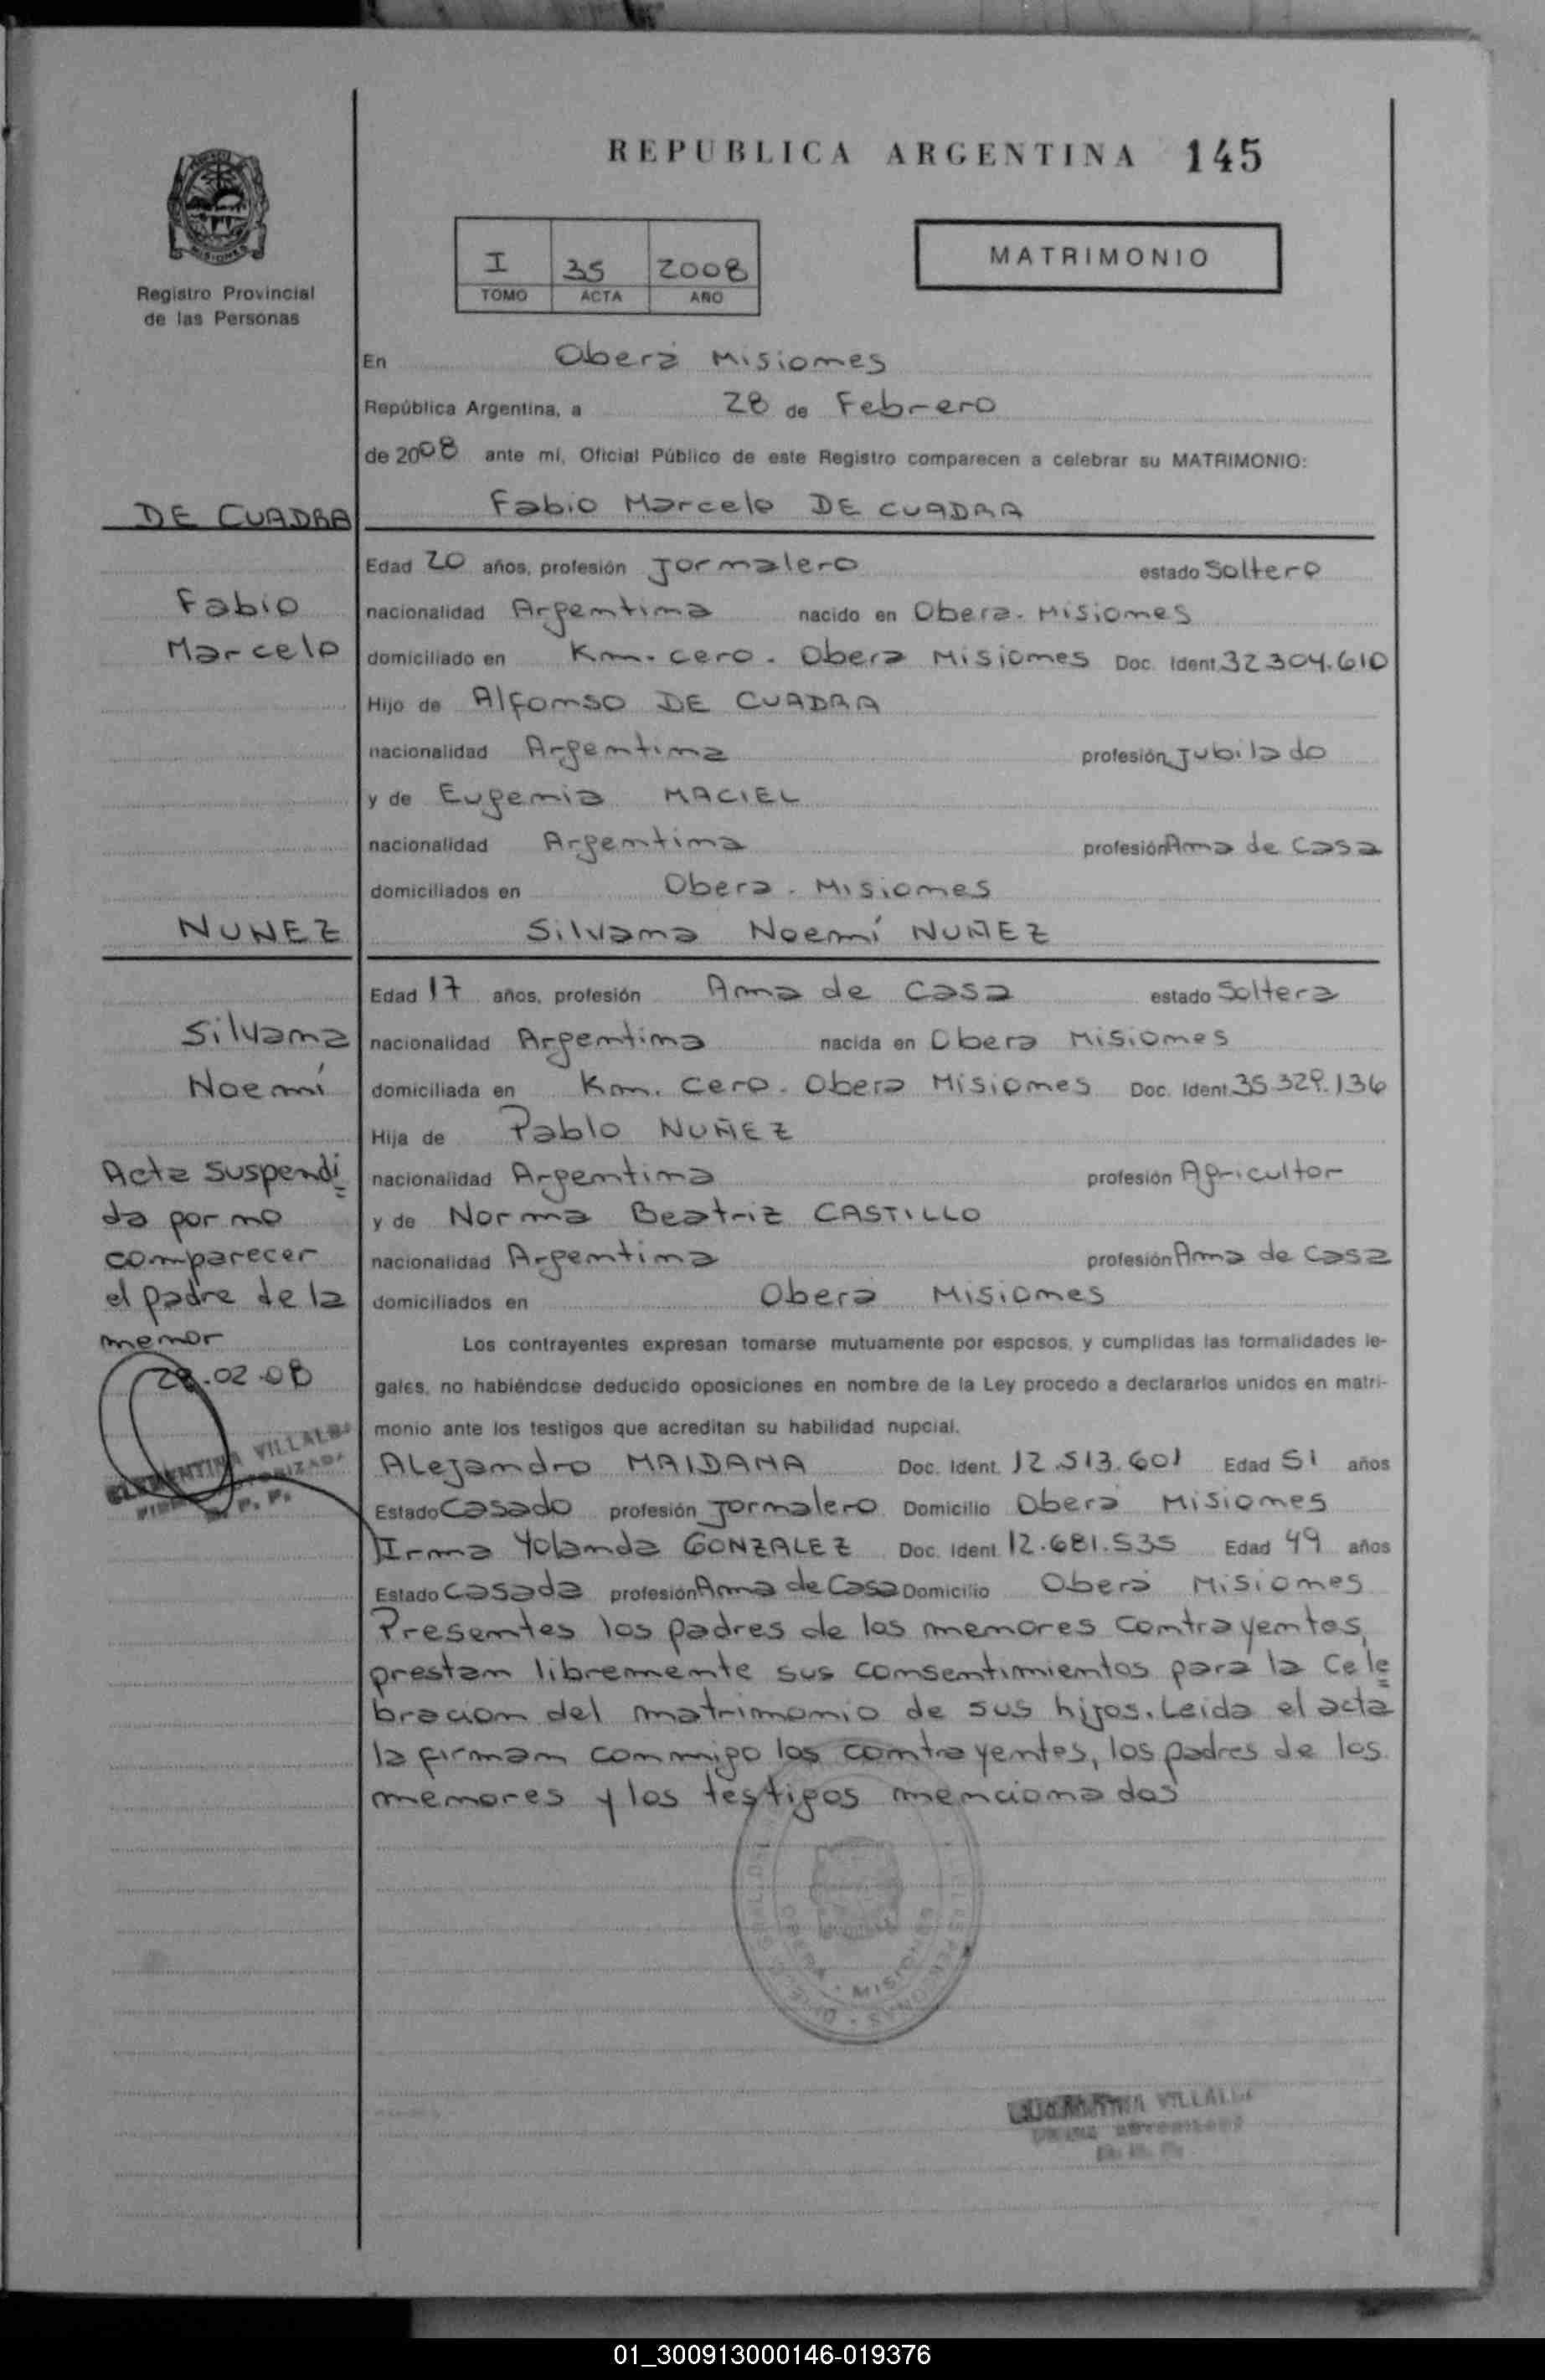 REPUBLICA ARGENTINA 145
MISIONES
Registro Provincial
de las Personas
I 35 2008
TOMO ACTA AÑO
MATRIMONIO
En Oberá Misiones
República Argentina, a 28 de Febrero
de 2008 ante mí, Oficial Público de este Registro comparecen a celebrar su MATRIMONIO:
DE CUADRA Fabio Marcelo DE CUADRA
Edad 20 años, profesión Jornalero estado Soltero
Fabio nacionalidad Argentina nacido en Obera. Misiones
Marcelo domiciliado en Km. cero. Obera Misiones Doc. Ident. 32 304.610
Hijo de Alfonso DE CUADRA
nacionalidad Argentina profesión Jubilado
y de Eugenia MACIEL
nacionalidad Argentina profesión Ama de Casa
domiciliados en Obera. Misiones
NUNEZ Silvana Noemí NUÑEZ
Edad 17 años, profesión Ama de Casa estado Soltera
Silvana nacionalidad Argentina nacida en Obera Misiones
Noemí domiciliada en Km. Cero. Obera Misiones Doc. Ident. 35 329.136
Hija de Pablo NUÑEZ
Acta suspendi nacionalidad Argentina profesión Agricultor
da por no y de Norma Beatriz CASTILLO
comparecer nacionalidad Argentina profesión Ama de Casa
el padre de la domiciliados en Oberá Misiones
menor Los contrayentes expresan tomarse mutuamente por esposos, y cumplidas las formalidades le-
28.02.08 gales, no habiéndose deducido oposiciones en nombre de la Ley procedo a declararlos unidos en matri-
monio ante los testigos que acreditan su habilidad nupcial.
CLEMENTINA VILLALBA
R. P. P.
Alejandro MAIDANA Doc. Ident. 12.513.601 Edad 51 años
Estado Casado profesión Jornalero Domicilio Oberá Misiones
Irma Yolanda GONZALEZ Doc. Ident. 12.681.535 Edad 49 años
Estado Casada profesión Ama de Casa Domicilio Oberá Misiones
Presentes los padres de los menores contrayentes,
prestan libremente sus consentimientos para la Cele
bracion del matrimonio de sus hijos. Leida el acta
la firman conmigo los contrayentes, los padres de los
menores y los testigos mencionados
MISIONES
VILLALBA
01_300913000146-019376